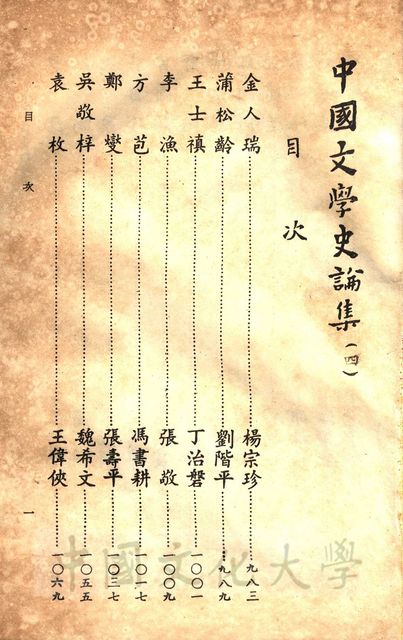 中國文學史論集(四)
目次
金人瑞……楊宗珍……九八三
蒲松齡……劉階平……九八九
王士禛……丁治磐……一〇〇一
李漁……張敬……一〇〇九
方苞……馮書耕……一〇一七
鄭燮……張壽平……一〇三七
吳敬梓……魏希文……一〇五五
袁枚……王偉俠……一〇六九
目次
一
中國文化大學